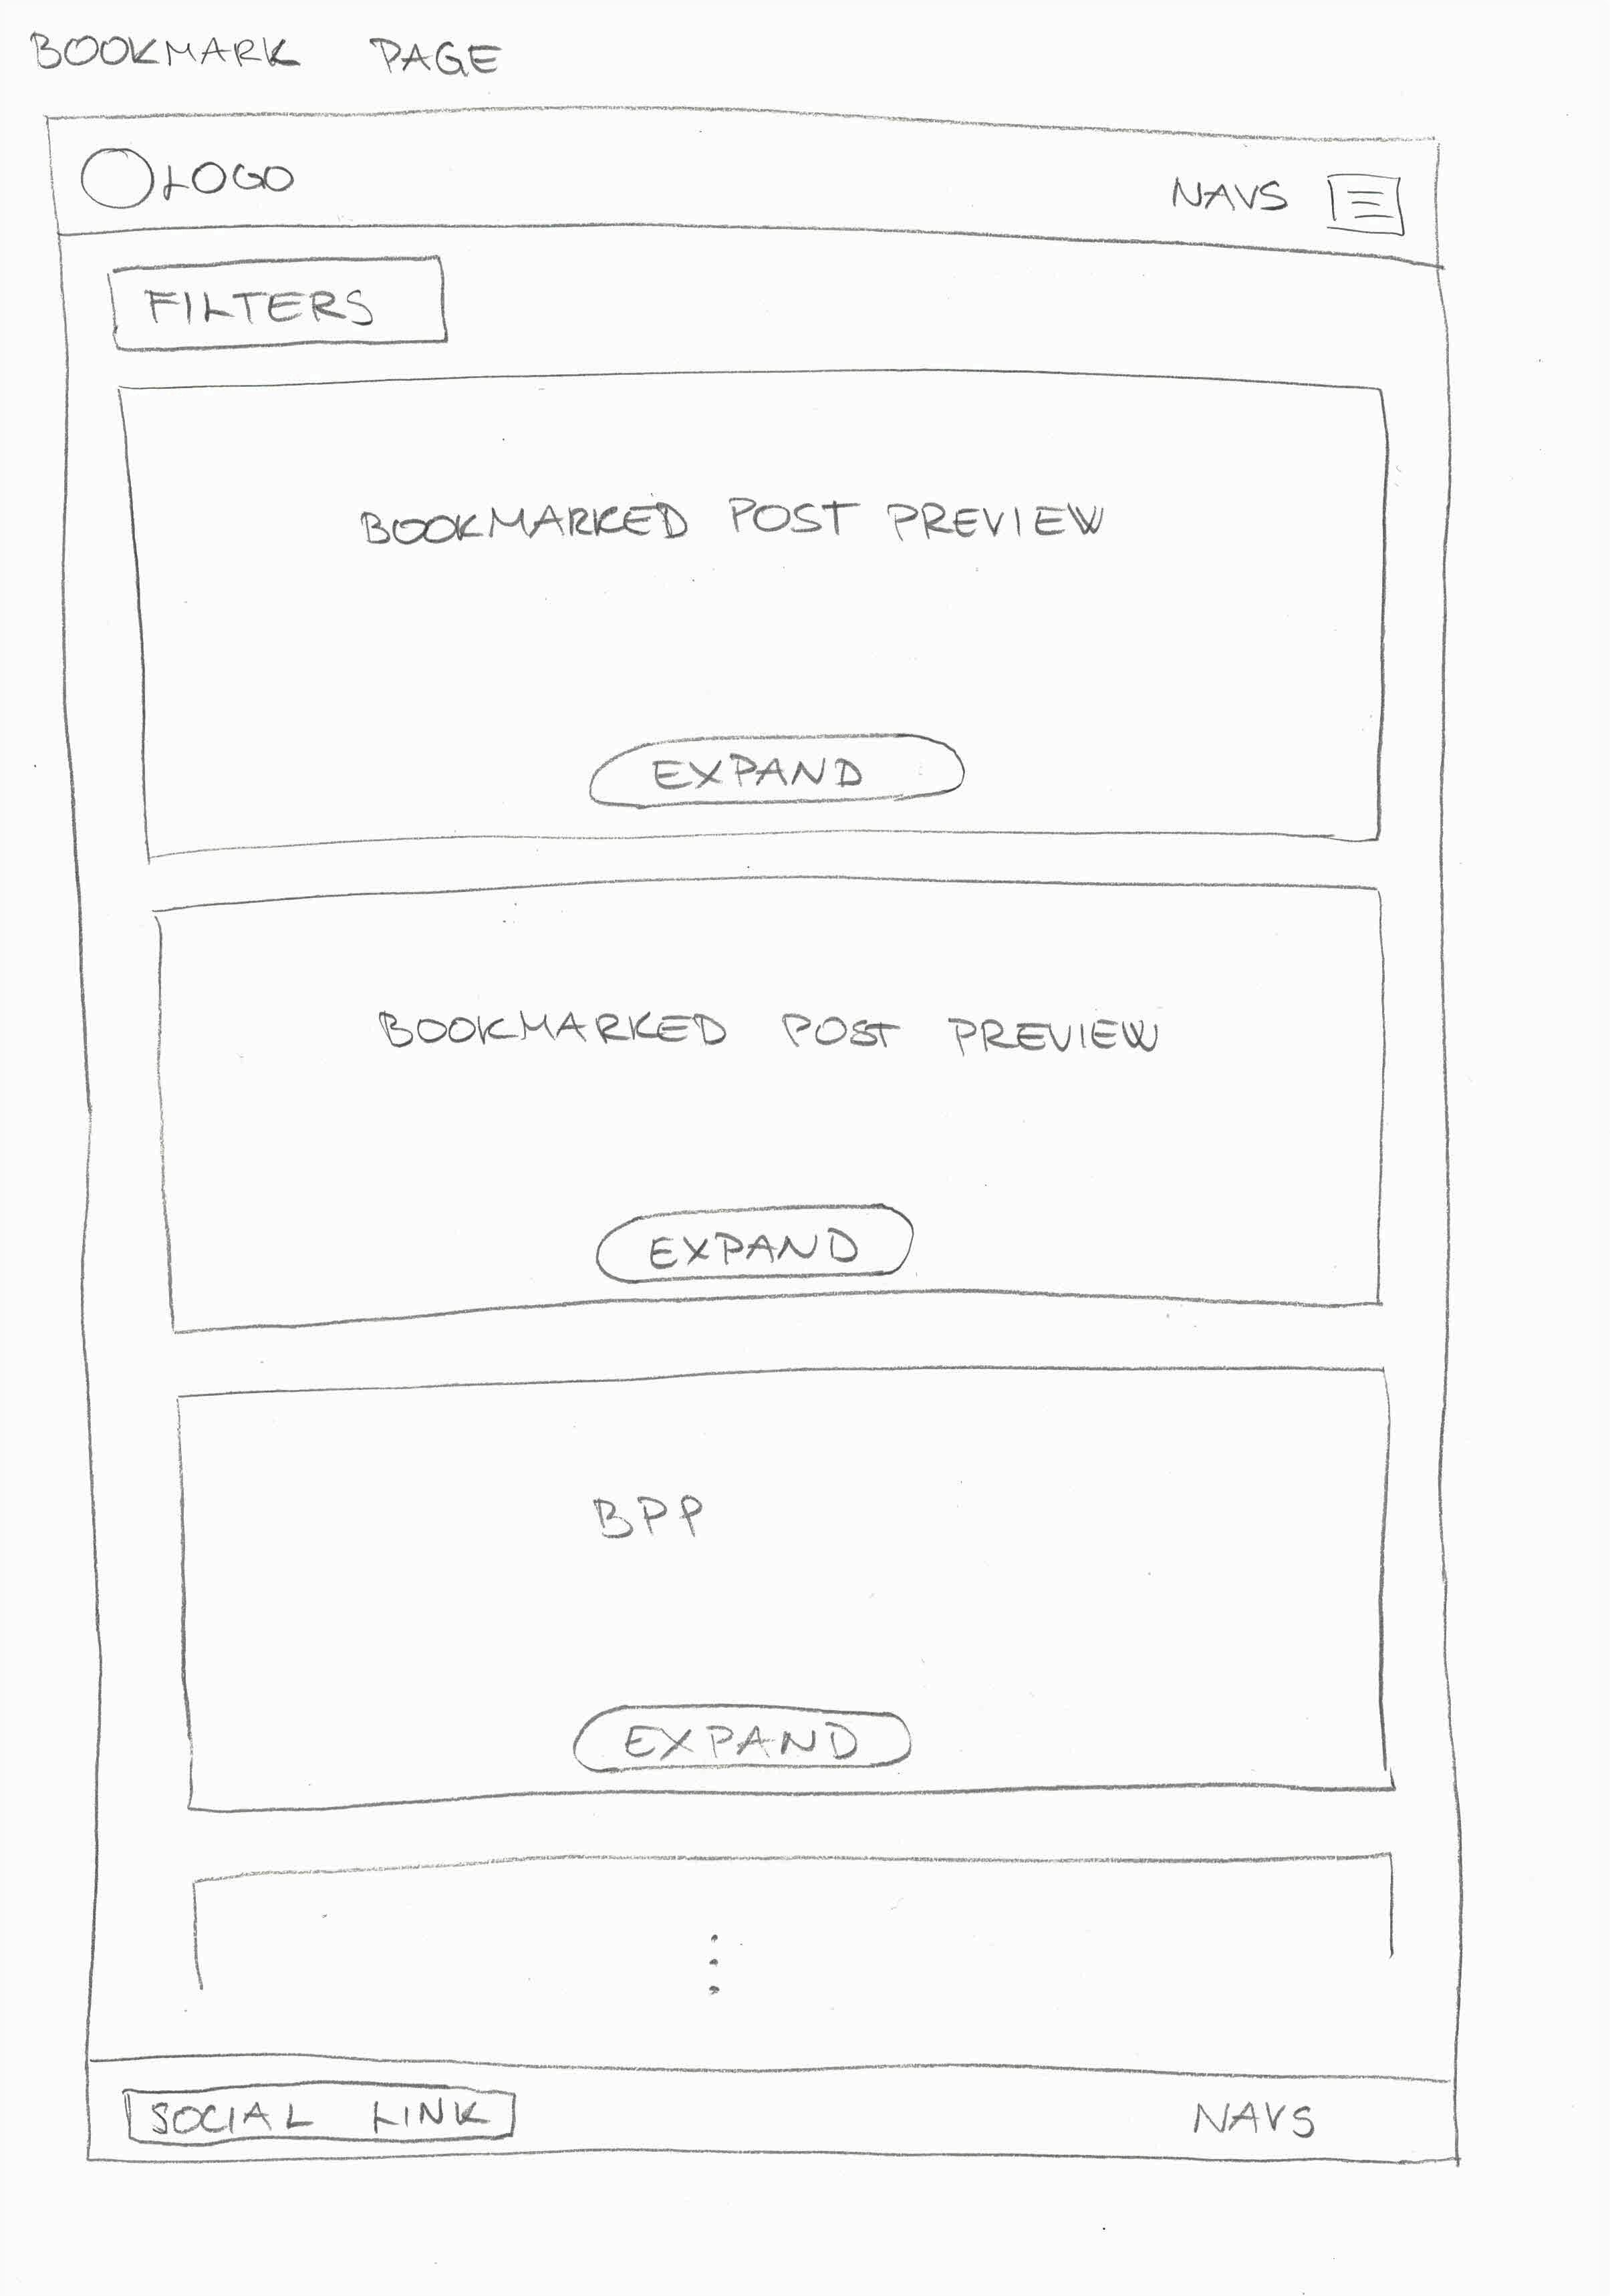 BOOKMARK PAGE
LOGO NAVS
FILTERS
BOOKMARKED POST PREVIEW
EXPAND
BOOKMARKED POST PREVIEW
EXPAND
BPP
EXPAND
SOCIAL LINK NAVS